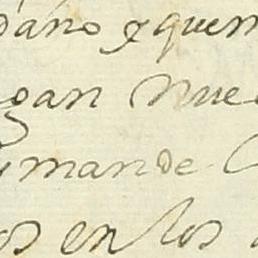 daño y quem
gan nue
y mande
os en los